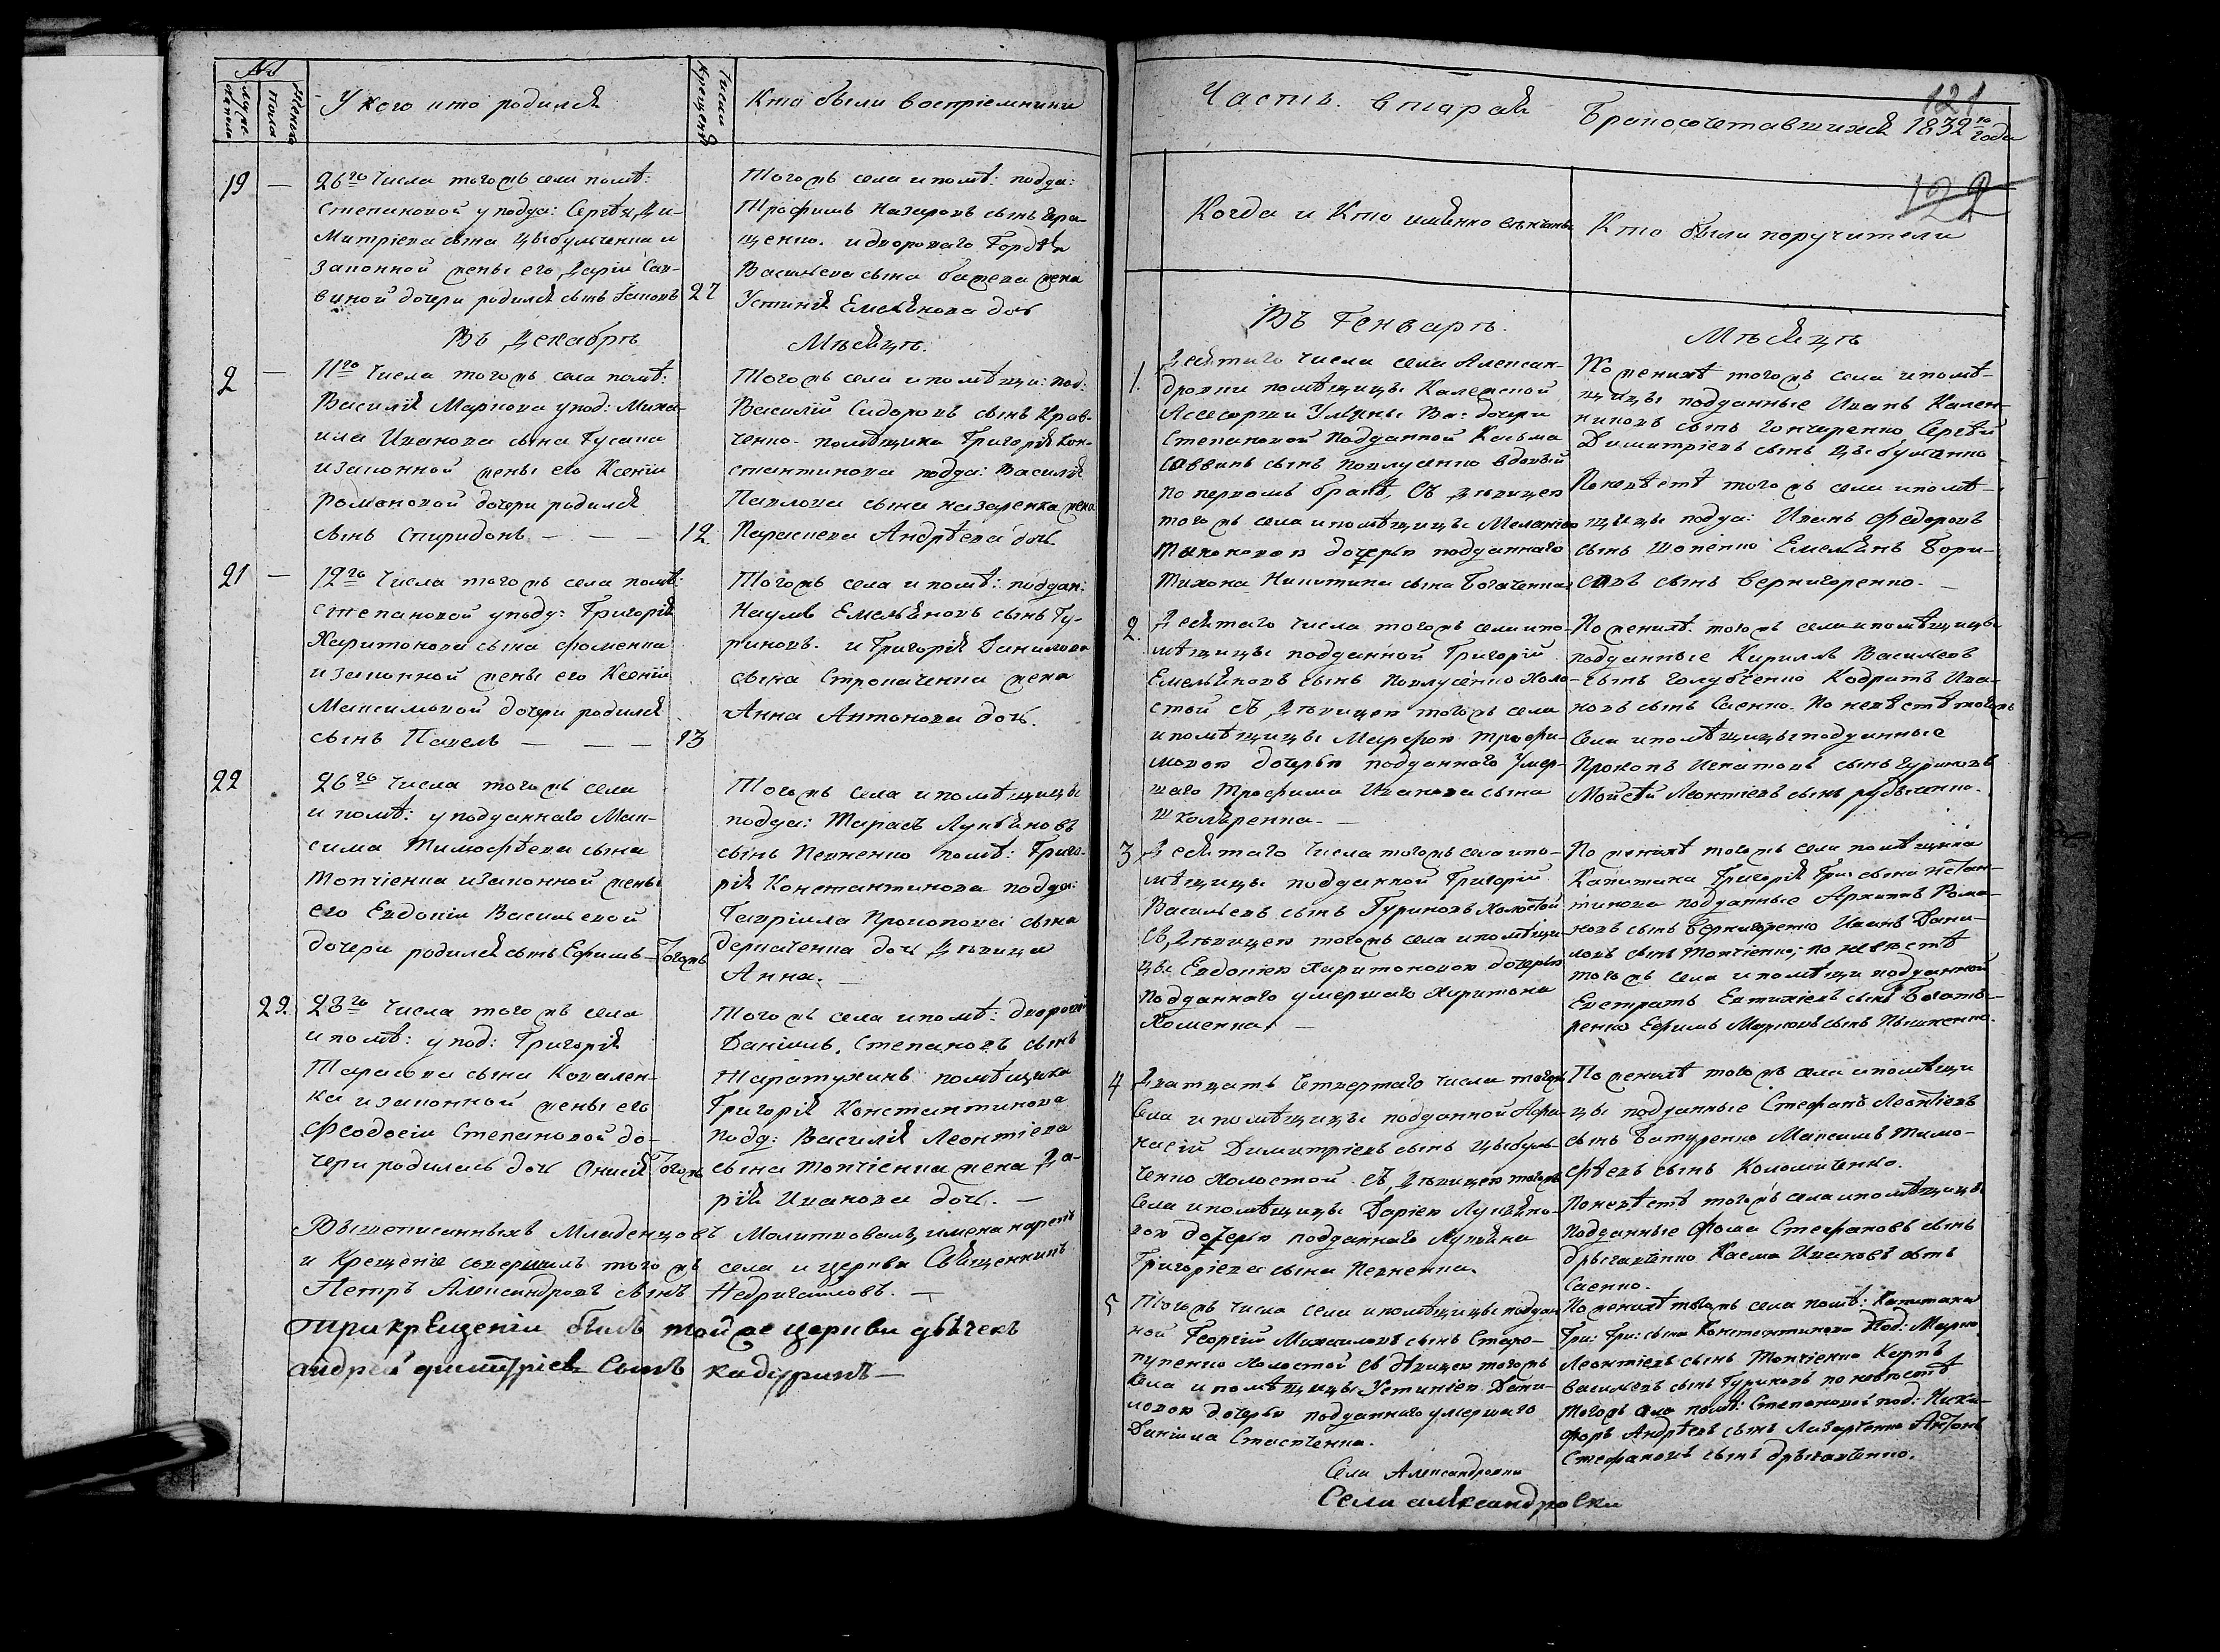 №
Муже
ска пола
Женска
пола
У кого кто родился
Числа
Крещен
Кто были восприемники
19 — 26го Числа тогожъ села помѣ:
Степановой у подда: Сергѣя Ди-
митріева сына Цыбульченка и
законной жены его Даріи Сав-
виной дочери родился сынъ Іаковъ 27
Тогожъ села и помѣ: подда:
Трофимъ Назаровъ сынъ
ценко. и двороваго Гордѣя
Васильева сына жена
Устинія Емельянова дочь
Въ Декабрѣ
Мѣсяцѣ.
2 — 11го Числа тогожъ села помѣ:
Василія Маркова у под: Миха-
ила Иванова сына Гусака
и законной жены его Ксеніи
Романовой дочери родился
сынъ Спиридонъ — — — 12.
Тогожъ села и помѣщи: под:
Василій Сидоровъ сынъ Крав-
ченко. помѣщика Григорія Кон-
стантинова подда: Василія
Павлова сына Назаренка жена
Параскева Андрѣева дочь
21 — 12го Числа тогожъ села помѣ:
Степановой у подд: Григорія
Харитонова сына Фоменка
и законной жены его Ксеніи
Максимовой дочери родился
сынъ Павелъ — — — 13
Тогожъ села и помѣ: поддан:
Наумъ Емельяновъ сынъ Гу-
риновъ. и Григорія Данилова
сына Строкаченка жена
Анна Антонова дочь.
22 26го Числа тогожъ села
и помѣ: у подданнаго Мак-
сима Тимофѣева сына
Топчіенка и законной жены
его Евдокіи Васильевой
дочери родился сынъ Ефимъ — Тогожъ
Тогожъ села и помѣщицы
подда: Тарасъ Лукьяновъ
сынъ Певненко помѣ: Григо-
рія Константинова подда:
Гавріила Прокопова сына
Деркаченка дочь Дѣвица
Анна. —
23. 28го Числа тогожъ села
и помѣ: у под: Григорія
Тарасова сына Ковален-
ка и законной жены его
Феодосіи Степановой до-
чери родилась дочь Онисія Тогожъ
Тогожъ села и помѣ: дворовій
Даніилъ Степановъ сынъ
Таратухинъ помѣщика
Григорія Константинова
подд: Василія Леонтіева
сына Топчіенка жена Да-
рія Иванова дочь. —
Вышеписанныхъ Младенцовъ Молитвовалъ, имена нарекъ
и Крещеніе совершилъ тогожъ села и церкви Священникъ
Петръ Александровъ сынъ Недригайловъ. —
При крещеніи былъ той же церкви дьячекъ
Андрей Димитріевъ сынъ Кадуринъ —
121
Часть вторая Бракосочетавшихся 1832го года
122
Когда и Кто именно вѣнчаны
Кто были поручители
Въ Генварѣ.
Мѣсяцѣ
1. Десятого числа села Алексан-
дровки помѣщицы Калежской
Асесоршы Ульяны Ва: дочери
Степановой Подданной Косьма
Саввинъ сынъ Павлусенко вдовый
по первомъ бракѣ, Съ дѣвицею
тогожъ села и помѣщицы Меланіею
Тихоновою дочерью подданнаго
Тихона Никитина сына Богаченка
По женихѣ тогожъ села и помѣ-
щицы подданные Иванъ Кален-
никовъ сынъ Гончаренко Сергѣй
Димитріевъ сынъ Цыбулченко
По невѣстѣ тогожъ села и помѣ-
щицы подда: Иванъ Федоровъ
сынъ Шопенко Емельянъ Бори-
совъ сынъ Вернигоренко. —
2. Десятаго числа тогожъ села и по-
мѣщицы подданной Григорій
Емельяновъ сынъ Павлусенко Холо-
стой съ Дѣвицею тогожъ села
и помѣщицы Марфою Трофи-
мовою дочерью подданнаго умер-
шаго Трофима Иванова сына
Школяренка. —
По женихѣ тогожъ села и помѣщицы
подданные Кирилъ Васильевъ
сынъ Голубченко Кодратъ Ива-
новъ сынъ Саенко. По невѣстѣ тогожъ
села и помѣщицы подданные
Прокопъ Игнатовъ сынъ Гуриновъ
Мойсей Леонтіевъ сынъ Рудыченко.
3 Десятаго числа тогожъ села и по-
мѣщицы подданной Григорій
Васильевъ сынъ Гуриновъ Холостой
Съ Дѣвицею тогожъ села и помѣщи-
цы Евдокіею Харитоновою дочерью
подданнаго умершаго Харитона
Хоменка. —
По женихѣ тогожъ села помѣщика
Капитана Григорія Гри: сына Констан-
тинова подданные Архипъ Рома-
новъ сынъ Вернигоренко Иванъ Дани-
ловъ сынъ Топчіенко, по невѣстѣ
тогожъ села и помѣщи: подданной
Евстратъ Евтихіевъ сынъ Богаты-
ренко Ефимъ Марковъ сынъ
4 Двадцать Четвертаго числа тогожъ
села и помѣщицы подданной Афа-
насій Димитріевъ сынъ Цыбуль-
ченко Холостой съ Дѣвицею тогожъ
села и помѣщицы Даріею Лукьяно-
вою дочерью подданнаго Лукьяна
Григоріева сына Певненка.
По женихѣ тогожъ села и помѣщи
цы подданные Стефанъ Леонтіевъ
сынъ Батуренко Максимъ Тимо-
фѣевъ сынъ Коломіченко.
По невѣстѣ тогожъ села и помѣщицы
Подданные Фома Стефановъ сынъ
Дрыгаченко Касма Ивановъ сынъ
Саенко.
5 Тогожъ числа села и помѣщицы поддан
ной Георгій Михайловъ сынъ Старо-
пупенко Холостой съ дѣвицею тогожъ
села и помѣщицы Устиніею Дани-
ловою дочерью подданнаго умершаго
Даніила Стасченка.
По женихѣ тогожъ села помѣ: Капитана
Гри: Гри: сына Константинова Под: Марко
Леонтіевъ сынъ Топчіенко Карпъ
Васильевъ сынъ Гуриновъ по невѣстѣ
тогожъ села помѣ: Степановой под: Ники-
форъ Андрѣевъ сынъ Лазарченко Антонъ
Стефановъ сынъ Дрыгаченко.
Села Александровки
Села Александровки